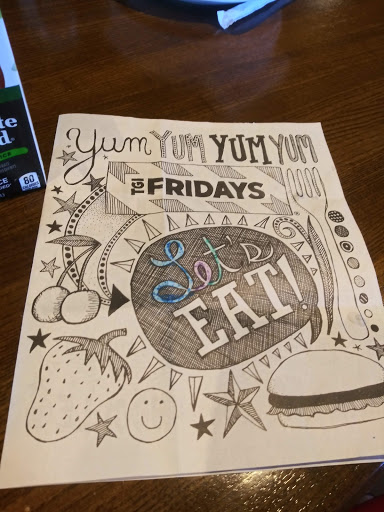 Yum YUM YUM YUM
TGI FRIDAYS
Let's
EAT!
60